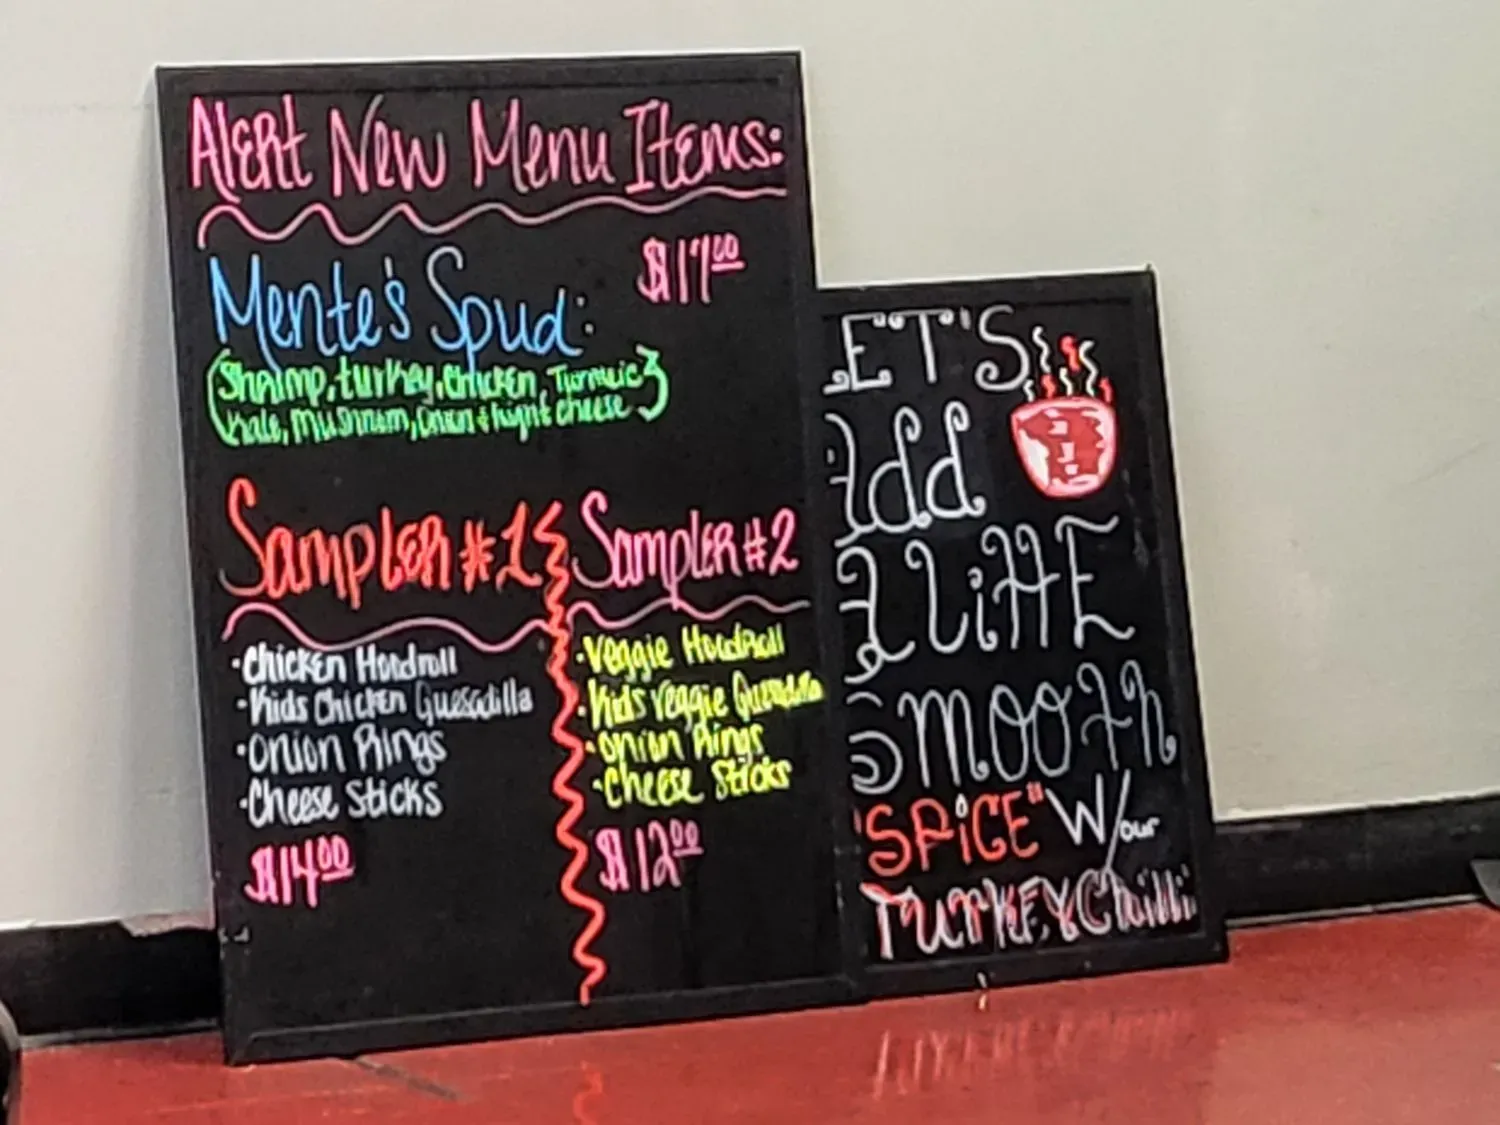 Alert New Menu Items:
Mente's Spud: $17.00
(Shrimp, turkey, chicken, Turmeric
Kale, Mushroom, Onion & light cheese)
Sampler #1
• Chicken Hoodroll
• Kids Chicken Quesadilla
• Onion Rings
• Cheese Sticks
$14.00
Sampler #2
• Veggie HoodRoll
• Kids Veggie Quesadilla
• Onion Rings
• Cheese Sticks
$12.00
LET'S
Add
A LittE
SMOOth
"SPiCE" W/our
TURKEY Chilli